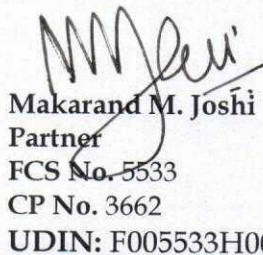 Makarand M. Joshi
Partner
FCS No. 5533
CP No. 3662
UDIN: F005533H00